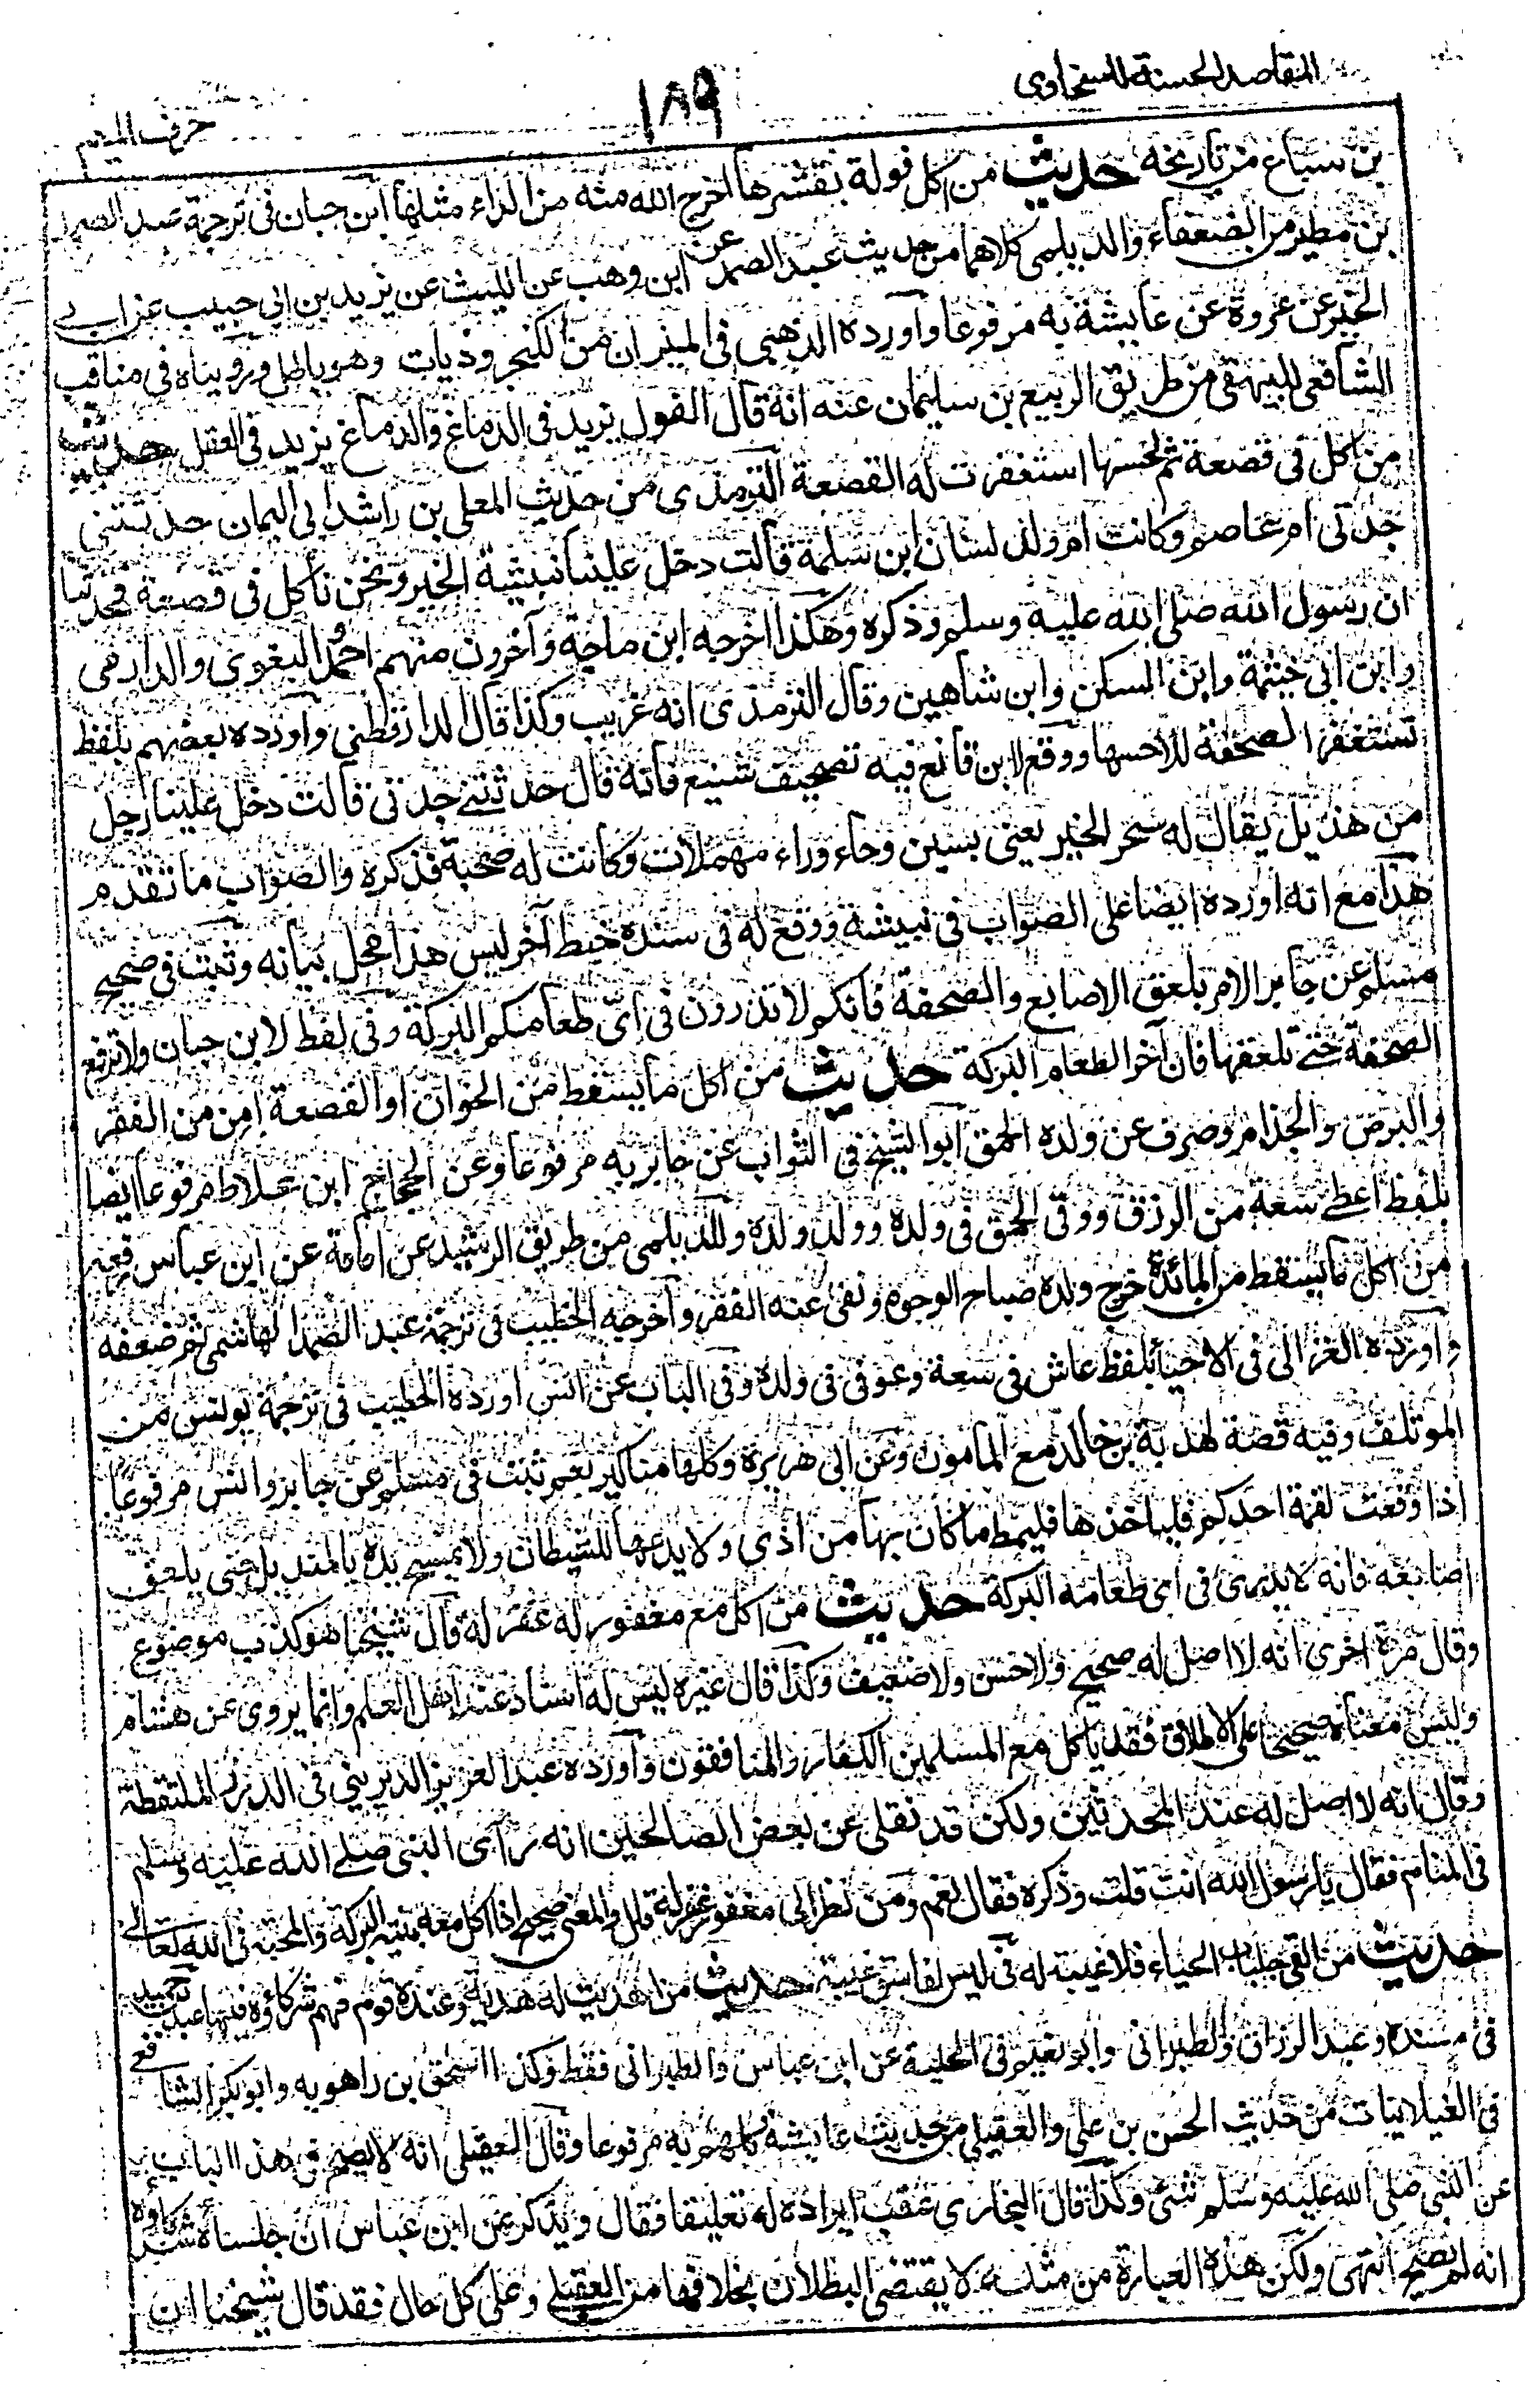 المقاصد الحسنة للسخاوى
١٨٩
حرف الميم
بن سباع من تاريخه حديث من اكل فولة بقشرها اخرج الله منه من الداء مثلها ابن حبان فى ترجمة عبد الصمد
بن مطير من الضعفاء والديلمى كلاهما من حديث عبد الصمد عن ابن وهب عن الليث عن يزيد بن ابى حبيب عن ابى
الخير عن عروة عن عايشة به مرفوعا واورده الذهبى فى الميزان من الكنجروذيات وهو باطل وروّيناه فى مناقب
الشافعى للبيهقى من طريق الربيع بن سليمان عنه انه قال الفول يزيد فى الدماغ والدماغ يزيد فى العقل حديث
من اكل فى قصعة ثم لحسها استغفرت له القصعة الترمذى من حديث المعلى بن راشد ابى اليمان حدثتنى
جدتى ام عاصم وكانت ام ولد لسنان ابن سلمة قالت دخل علينا نبيشة الخير ونحن نأكل فى قصعة فحدثنا
ان رسول الله صلى الله عليه وسلم وذكره وهكذا اخرجه ابن ماجة وآخرون منهم احمد والبغوى والدارمى
وابن ابى خيثمة وابن السكن وابن شاهين وقال الترمذى انه غريب وكذا قال الدارقطنى واورده بعضهم بلفظ
تستغفر الصحفة للاحسها ووقع لابن قانع فيه تصحيف شنيع فانه قال حدثتنى جدتى قالت دخل علينا رجل
من هذيل يقال له سحر الخير يعنى بسين وحاء وراء مهملات وكانت له صحبة فذكره والصواب ما تقدم
هذا مع انه اورده ايضا على الصواب فى نبيشة ووقع له فى سنده خبط آخر ليس هذا محل بيانه وثبت فى صحيح
مسلم عن جابر الامر بلعق الاصابع والصحفة فانكم لا تدرون فى اى طعامكم البركة وفى لفظ لابن حبان ولا ترفع
الصحفة حتى تلعقها فان آخر الطعام البركة حديث من اكل ما يسقط من الخوان او القصعة امن من الفقر
والبرص والجذام وصرف عن ولده الحمق ابو الشيخ فى الثواب عن جابر به مرفوعا وعن الحجاج ابن علاط مرفوعا ايضا
بلفظ اعطى سعة من الرزق ووقى الحمق فى ولده وولد ولده وللديلمى من طريق الرشيد عن آبائه عن ابن عباس رفعه
من اكل ما يسقط من المائدة خرج ولده صباح الوجوه ونفى عنه الفقر واخرجه الخطيب فى ترجمة عبد الصمد الهاشمى ثم ضعفه
واورده الغزالى فى الاحياء بلفظ عاش فى سعة وعوفى فى ولده وفى الباب عن انس اورده الخطيب فى ترجمة يونس من
الموتلف وفيه قصة لهدبة بن خالد مع المامون وعن ابى هريرة وكلها مناكير نعم ثبت فى مسلم عن جابر وانس مرفوعا
اذا وقعت لقمة احدكم فلياخذها فليمط ما كان بها من اذى ولا يدعها للشيطان ولا يمسح يده بالمنديل حتى يلعق
اصابعه فانه لا يدرى فى اى طعامه البركة حديث من اكل مع مغفور له غفر له قال شيخنا هو كذب موضوع
وقال مرة اخرى انه لا اصل له صحيح ولا حسن ولا ضعيف وكذا قال غيره ليس له اسناد عند اهل العلم وانما يروى عن هشام
وليس معناه صحيحا على الاطلاق فقد ياكل مع المسلمين الكفار والمنافقون واورده عبد العزيز الديرينى فى الدرر الملتقطة
وقال انه لا اصل له عند المحدثين ولكن قد نقل عن بعض الصالحين انه رآى النبى صلى الله عليه وسلم
فى المنام فقال يا رسول الله انت قلت وذكره فقال نعم ومن نظر الى مغفور غفر له قال والمعنى صحيح اذا اكل معه بنية البركة والمحبة فى الله تعالى
حديث من القى جلباب الحياء فلا غيبة له فى ليس لفاسق غيبة حديث من اهديت له هدية وعنده قوم فهم شركاؤه فيها عبد بن حميد
فى مسنده وعبد الرزاق والطبرانى وابو نعيم فى الحلية عن ابن عباس والطبرانى فقط وكذا اسحق بن راهويه وابو بكر الشافعى
فى الغيلانيات من حديث الحسن بن على والعقيلى من حديث عايشة كلهم به مرفوعا وقال العقيلى انه لا يصح فى هذا الباب
عن النبى صلى الله عليه وسلم شئ وكذا قال البخارى عقب ايراده له تعليقا فقال ويذكر عن ابن عباس ان جلساءه شركاؤه
انه لم يصح انتهى ولكن هذه العبارة من مثله لا يقتضى البطلان بخلافها من العقيلى وعلى كل حال فقد قال شيخنا ان